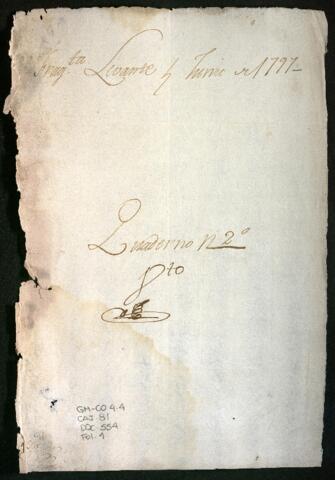 Fragta Levante y Junio de 1797
Quaderno N 2º
Gto
GM-CO 4-4
CAJ 81
DOC 554
Fol. 1